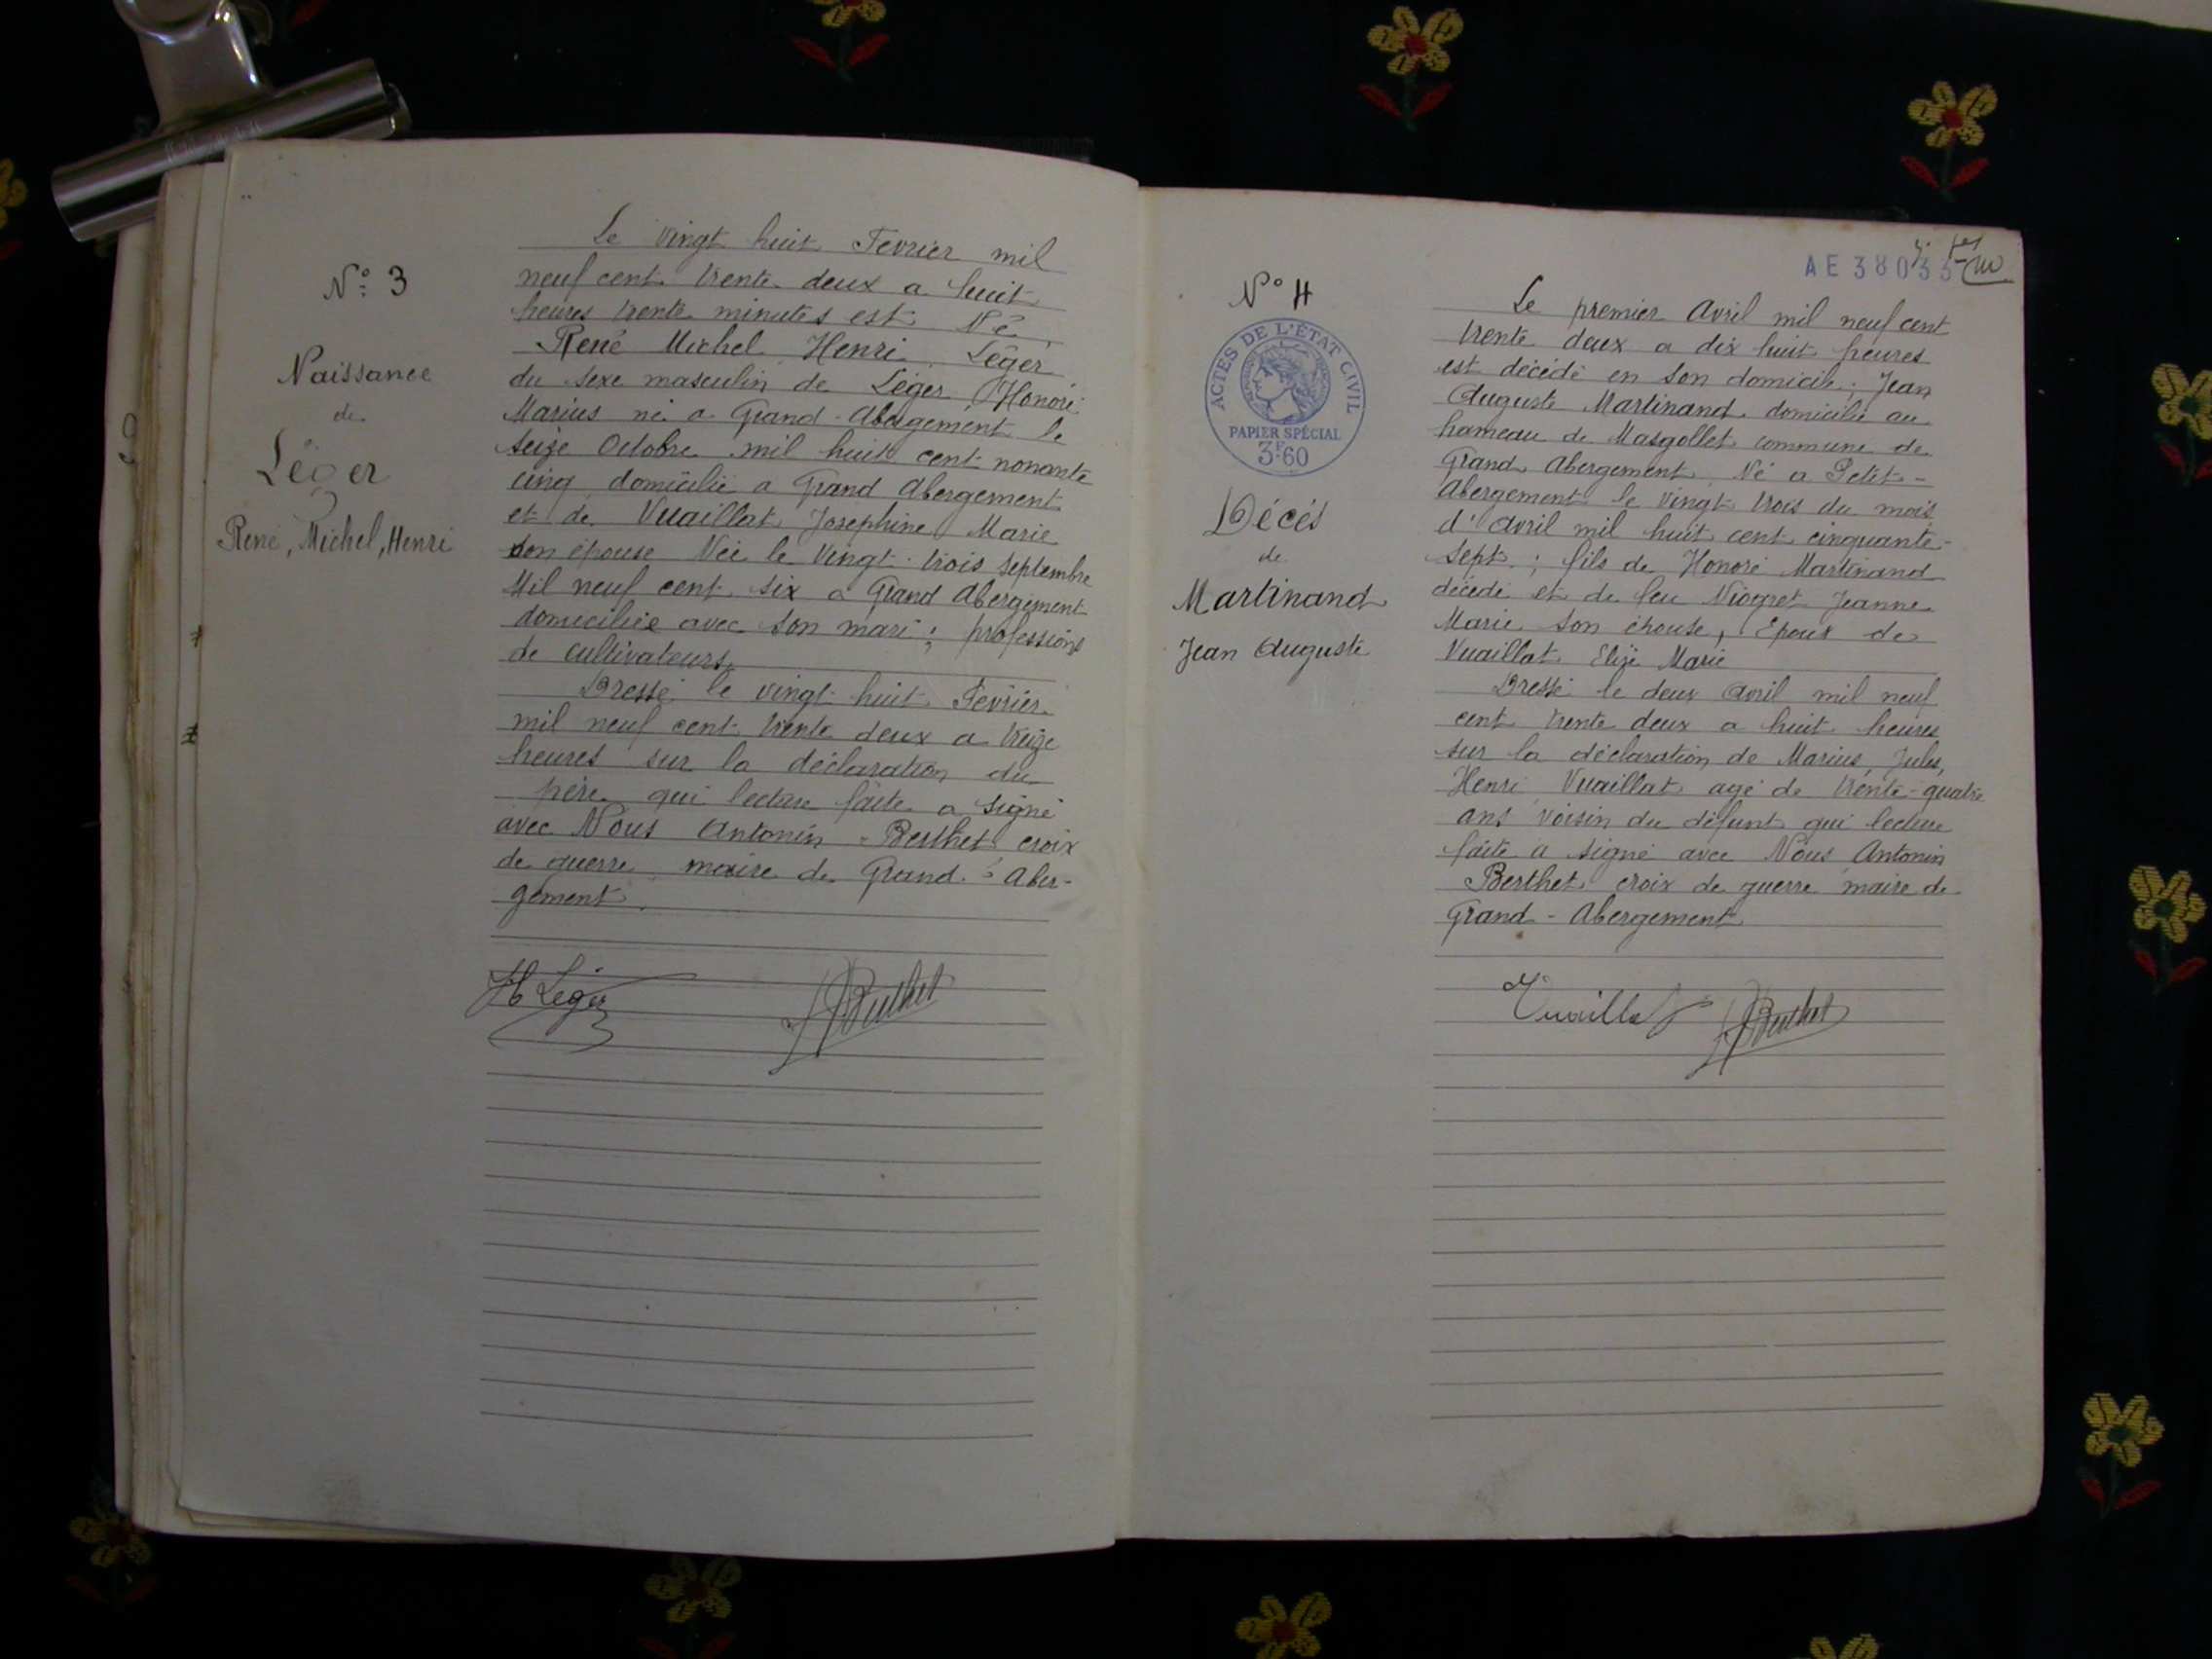 N° 3
Naissance
de
Léger
René, Michel, Henri
Le vingt huit Fevrier mil
neuf cent trente deux a huit
heures trente minutes est Né
René Michel Henri Léger
du sexe masculin de Léger Honoré
Marius né a Grand-Abergement le
seize Octobre mil huit cent nonante
cinq domicilié a Grand Abergement
et de Vuaillat Josephine Marie
son épouse Née le vingt-trois septembre
Mil neuf cent six a Grand Abergement
domiciliée avec son mari ; professions
de cultivateurs
Dressé le vingt huit Fevrier
mil neuf cent trente deux a treize
heures sur la déclaration du
père qui lecture faite a signé
avec Nous Antonin Berthet croix
de guerre maire de Grand-Aber-
gement
H Léger
Berthet
AE 38033
N° 4
ACTES DE L'ÉTAT CIVIL
PAPIER SPÉCIAL
3F60
Décés
de
Martinand
Jean Auguste
Le premier Avril mil neuf cent
trente deux a dix huit heures
est décédé en son domicile ; Jean
Auguste Martinand domicilié au
hameau de Masgollet commune de
Grand Abergement Né a Petit-
Abergement le vingt trois du mois
d'Avril mil huit cent cinquante-
sept ; fils de Honoré Martinand
décédé et de feu Niogret Jeanne
Marie son épouse, Epoux de
Vuaillat Elise Marie
Dressé le deux Avril mil neuf
cent trente deux a huit heures
sur la déclaration de Marius, Jules,
Henri Vuaillat agé de trente-quatre
ans voisin du défunt qui lecture
faite a signé avec Nous Antonin
Berthet croix de guerre maire de
Grand-Abergement
Vuaillat
Berthet